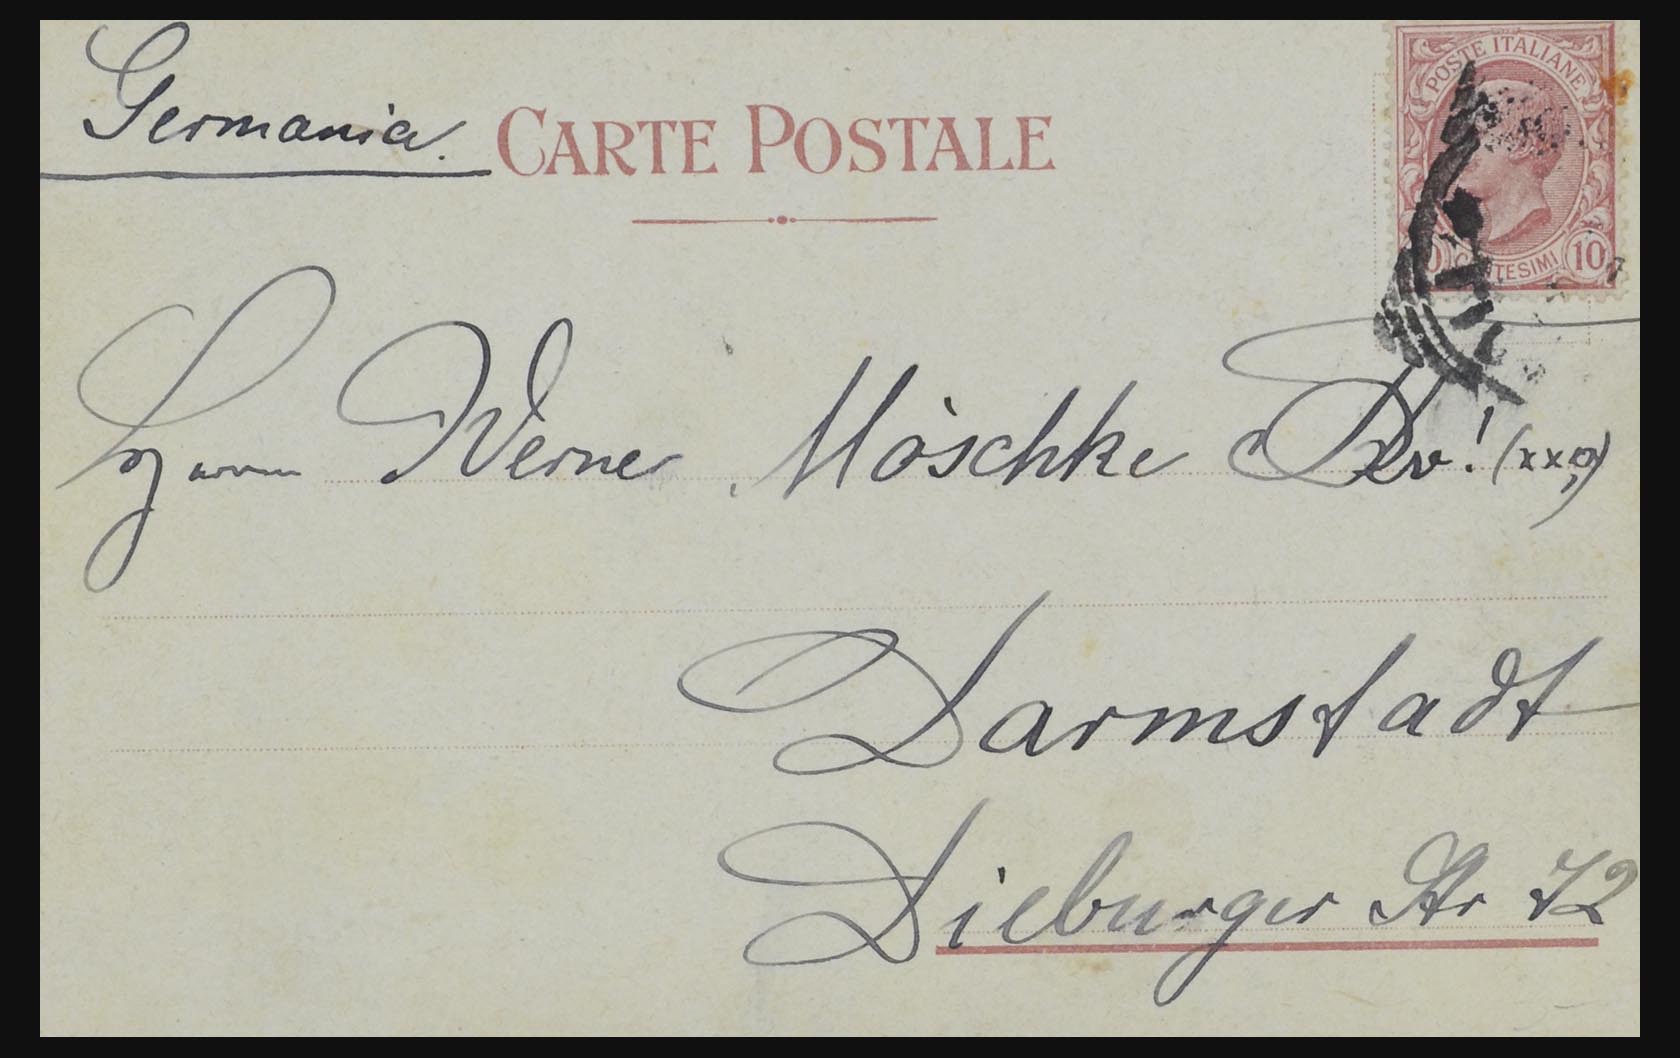 Germania.
CARTE POSTALE
POSTE ITALIANE
CENTESIMI 10
Herrn Werner Möschke ! (xx,o)
Darmstadt
Dieburger Str 72